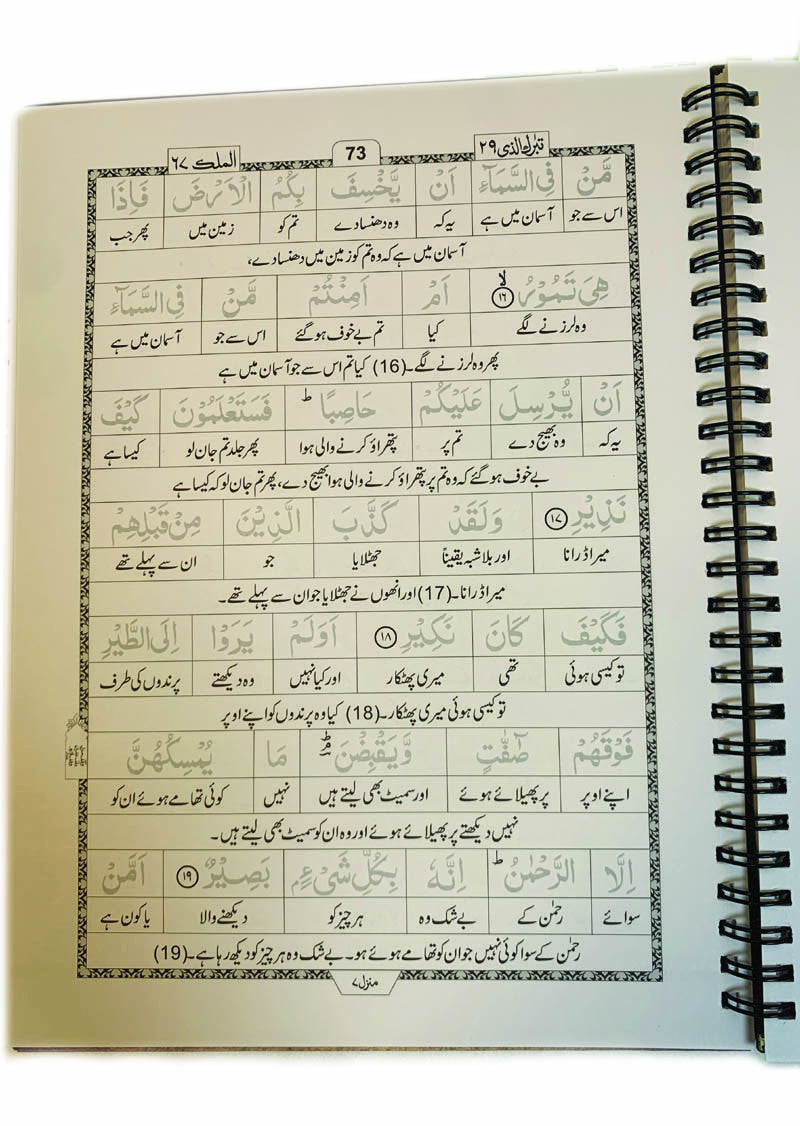 تبٰرك الذى ٢٩ 73 الملك ٦٧
مَّنْ فِى السَّمَآءِ اَنْ يَّخْسِفَ بِكُمُ الْاَرْضَ فَاِذَا
اس سے جو آسمان میں ہے یہ کہ وہ دھنسا دے تم کو زمین میں پھر جب
آسمان میں ہے کہ وہ تم کو زمین میں دھنسا دے،
هِىَ تَمُوْرُ ۙ ١٦ اَمْ اَمِنْتُمْ مَّنْ فِى السَّمَآءِ
وہ لرزنے لگے کیا تم بے خوف ہو گئے اس سے جو آسمان میں ہے
پھر وہ لرزنے لگے۔ (16) کیا تم اس سے جو آسمان میں ہے
اَنْ يُّرْسِلَ عَلَيْكُمْ حَاصِبًا ؕ فَسَتَعْلَمُوْنَ كَيْفَ
یہ کہ وہ بھیج دے تم پر پتھراؤ کرنے والی ہوا پھر جلد تم جان لو کیسا ہے
بے خوف ہو گئے کہ وہ تم پر پتھراؤ کرنے والی ہوا بھیج دے، پھر تم جان لو کہ کیسا ہے
نَذِيْرِ ١٧ وَلَقَدْ كَذَّبَ الَّذِيْنَ مِنْ قَبْلِهِمْ
میرا ڈرانا اور بلاشبہ یقیناً جھٹلایا جو ان سے پہلے تھے
میرا ڈرانا۔ (17) اور انھوں نے جھٹلایا جو ان سے پہلے تھے۔
فَكَيْفَ كَانَ نَكِيْرِ ١٨ اَوَلَمْ يَرَوْا اِلَى الطَّيْرِ
تو کیسی ہوئی تھی میری پھٹکار اور کیا نہیں وہ دیکھتے پرندوں کی طرف
تو کیسی ہوئی میری پھٹکار۔ (18) کیا وہ پرندوں کو اپنے اوپر
فَوْقَهُمْ صٰٓفّٰتٍ وَّيَقْبِضْنَ ؕ مَا يُمْسِكُهُنَّ
اپنے اوپر پر پھیلائے ہوئے اور سمیٹ بھی لیتے ہیں نہیں کوئی تھامے ہوئے ان کو
نہیں دیکھتے پر پھیلائے ہوئے اور وہ ان کو سمیٹ بھی لیتے ہیں۔
اِلَّا الرَّحْمٰنُ ؕ اِنَّهٗ بِكُلِّ شَىْءٍۭ بَصِيْرٌ ١٩ اَمَّنْ
سوائے رحمٰن کے بے شک وہ ہر چیز کو دیکھنے والا یا کون ہے
رحمٰن کے سوا کوئی نہیں جو ان کو تھامے ہوئے ہو۔ بے شک وہ ہر چیز کو دیکھ رہا ہے۔ (19)
منزل ٧